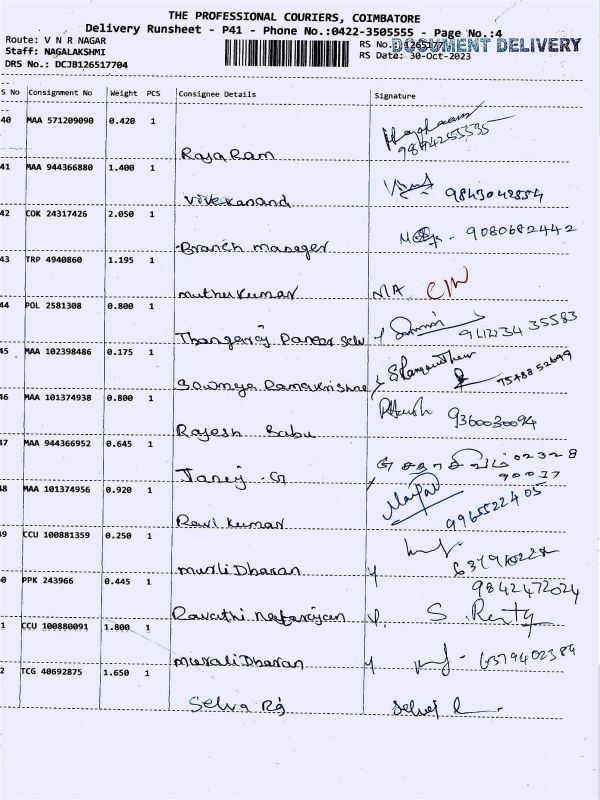 THE PROFESSIONAL COURIERS, COIMBATORE
Delivery Runsheet - P41 - Phone No.:0422-3505555 - Page No.:4
Route: V N R NAGAR
RS No.: 126517704 DOCUMENT DELIVERY
Staff: NAGALAKSHMI
RS Date: 30-Oct-2023
DRS No.: DCJB126517704
S No Consignment No Weight PCS Consignee Details Signature
40 MAA 571209090 0.420 1
RajaRam 9894255535
41 MAA 944366880 1.400 1
Vivekanand 9843042554
42 COK 24317426 2.050 1
Branch Manager 9080682442
43 TRP 4940860 1.195 1
muthukumar N/A
44 POL 2581308 0.800 1
Thangaraj
45 MAA 102398486 0.175 1
Sowmya Ramakrishna 7548852699
46 MAA 101374938 0.800 1
Rajesh Babu 9360030094
47 MAA 944366952 0.645 1
48 MAA 101374956 0.920 1
Ravi Kumar 9965522405
49 CCU 100881359 0.250 1
murliDharan
0 PPK 243966 0.445 1
9842472024
Ravathi Natarajan
1 CCU 100880091 1.800 1
muraliDharan 6379402389
2 TCG 40692875 1.650 1
Selva Raj